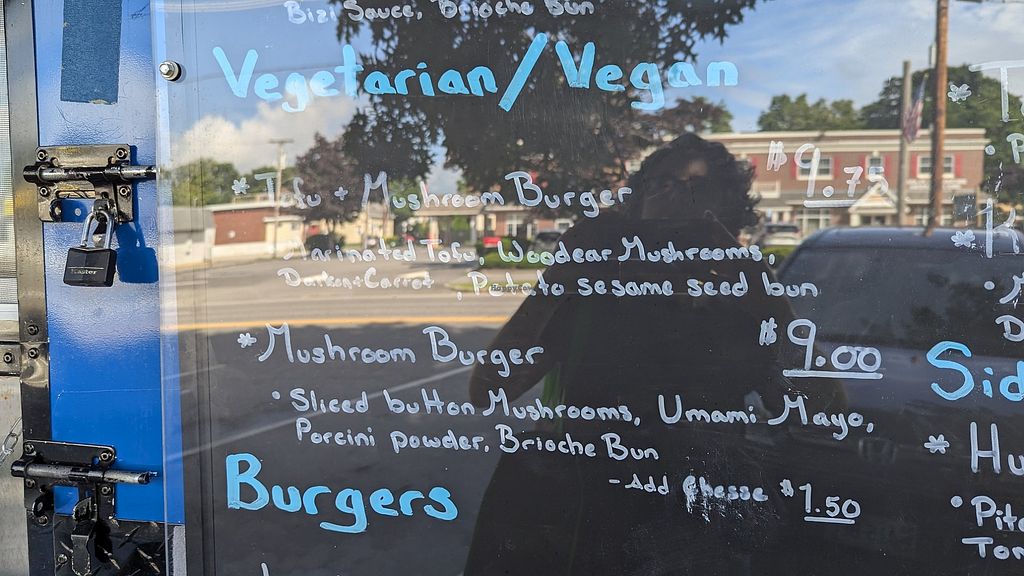 Bizi Sauce, Brioche Bun
Vegetarian/Vegan
* Tofu + Mushroom Burger $9.75
- Marinated Tofu, Woodear Mushrooms,
Daikon + Carrot, Potato sesame seed bun
* Mushroom Burger $9.00
• Sliced button Mushrooms, Umami Mayo,
Porcini powder, Brioche Bun
- Add Chesse $1.50
Burgers
Sid
* Hu
• Pita
Tom
Master